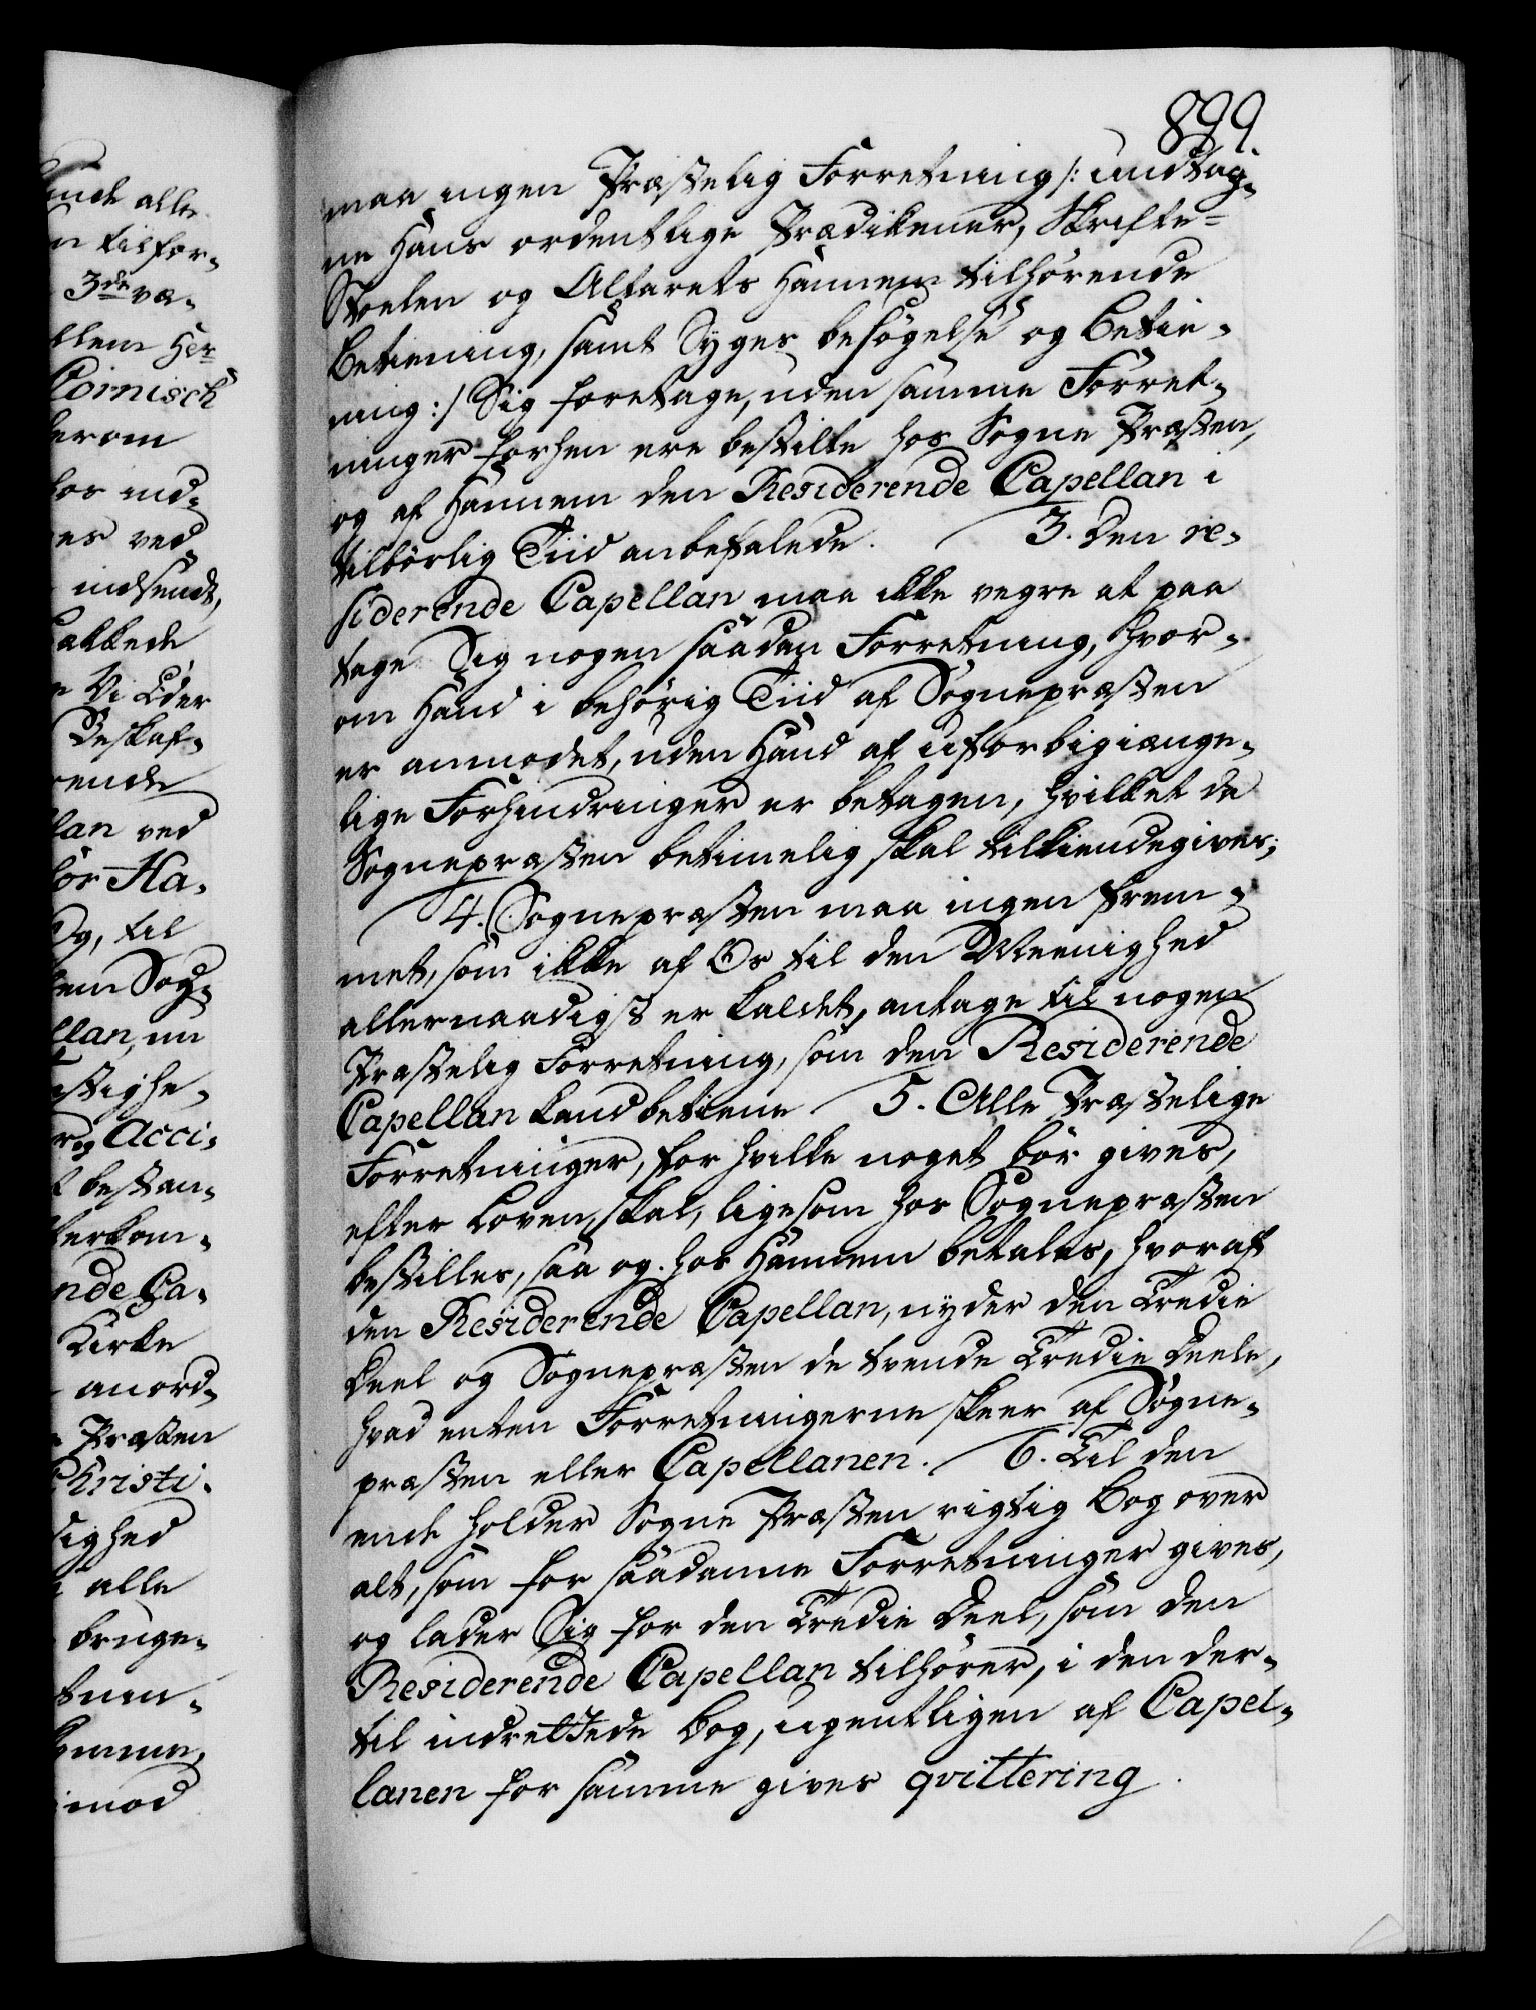 899.
maa ingen Præstelig Forretning /: undtag-
ne Hans ordentlige Prædikener, Skrifte-
Stolen og Altarets Hannem tilhørende
betiening, samt Syges besøgelse og betie-
ning :/ Sig foretage, uden samme Forret-
ninger forhen ere bestilte hos Sogne Præsten,
og af Hannem den Residerende Capellan i
tilbørlig Tiid anbefalede. 3. Den re-
siderende Capellan maa ikke vegre at paa
tage Sig nogen saadan Forretning, hvor-
om Hand i behørig Tiid af Sognepræsten
er anmodet, uden Hand af uforbigiænge-
lige Forhindringer er betagen, hvilket da
Sognepræsten betimelig skal tilkiendegives;
4. Sognepræsten maa ingen frem-
met, som ikke af Os til den Meenighed
allernaadigst er kaldet, antage til nogen
Præstelig Forretning, som den Residerende
Capellan kand betiene 5. Alle Præstelige
Forretninger, for hvilke noget bør gives,
efter Loven, skal, ligesom hos Sognepræsten
bestilles, saa og hos Hannem betales, hvoraf
den Residerende Capellan, nyder den Tredie
Deel og Sognepræsten de tvende Tredie Deele,
hvad enten Forretningerne skeer af Sogne-
præsten eller Capellanen. 6. Til den
ende holder Sogne Præsten rigtig Bog over
alt, som for saadanne Forretninger gives,
og lader Sig for den Tredie Deel, som den
Residerende Capellan tilhører, i den der-
til indrettede Bog, ugentligen af Capel-
lanen for samme gives qvittering